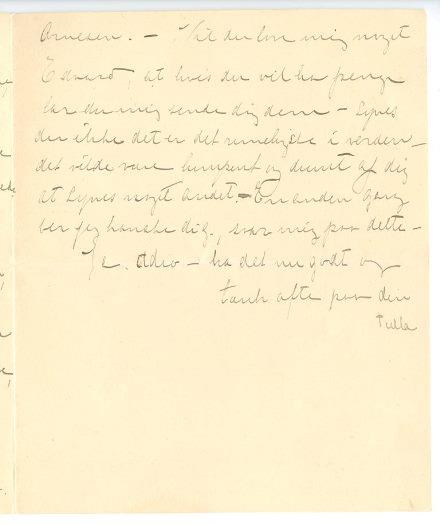 Arnesen. – Vil du love mig noget
Edvard, at hvis du vil ha penge
lar du mig sende dig dem – Synes
du ikke det er det rimeligste i verden –
det vilde være lumpent og dumt af dig
at synes noget andet – En anden gang
ber jeg kanske dig., svar mig paa dette –
Ja. Adio – ha det nu godt og
tænk ofte paa din
Tulla